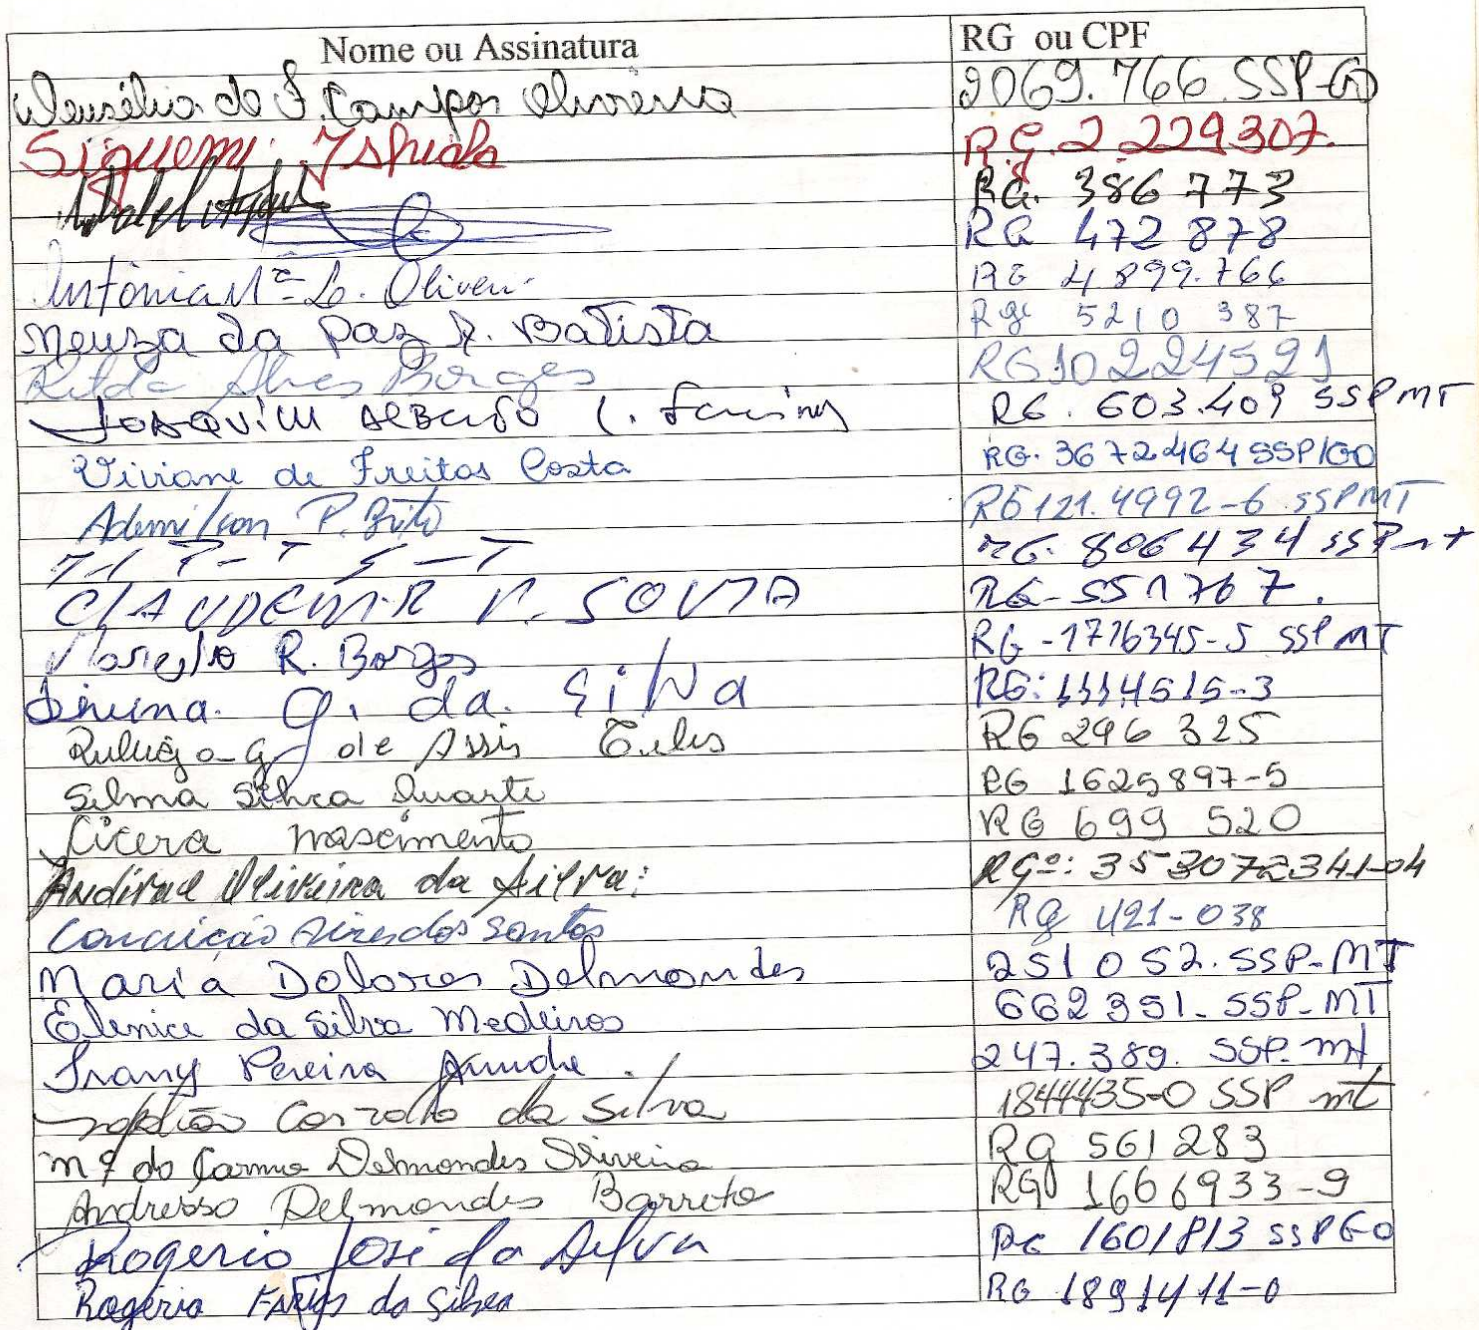 Nome ou Assinatura RG ou CPF
do F. Campos Oliveira 2069.766 SSP-GO
Siquemi Ishida RG. 2.229307.
RG. 386 773
RG 472 878
Antônia Mª L. Oliveira RG 4 899.766
Neuza da Paz R. Batista Rg 5210 387
Alves Borges RG 102224521
Joaquim Alberto C. RG. 603.409 SSPMT
Viviane de Freitas Costa RG. 3672464 SSP/GO
Ademilson P. Brito RG 121.4992-6 SSPMT
RG. 806434 SSP mt
CLAUDEMIR V. SOUZA RG-551767.
Marcello R. Borges RG-1776345-5 SSP MT
G. da Silva RG: 1114515-3
de Assis Teles RG 296 325
Selma Silvia Duarte RG 1625897-5
Cicera Nascimento RG 699 520
Oliveira da Silva: RGº: 353072341-04
Conceição Aires dos Santos Rg 421-038
Maria Dolores Delmondes 251052. SSP-MT
Elenice da Silva Medeiros 662391-SSP-MT
Irany Pereira 247.389. SSP-mt
da Silva 1844435-0 SSP mt
Mª do Carmo Delmondes Oliveira RG 561283
Andresso Delmondes Barreto RG 1666933-9
Rogerio José da Silva RG 1601813 SSPGO
Rogério Farias da Silva RG 1891411-0